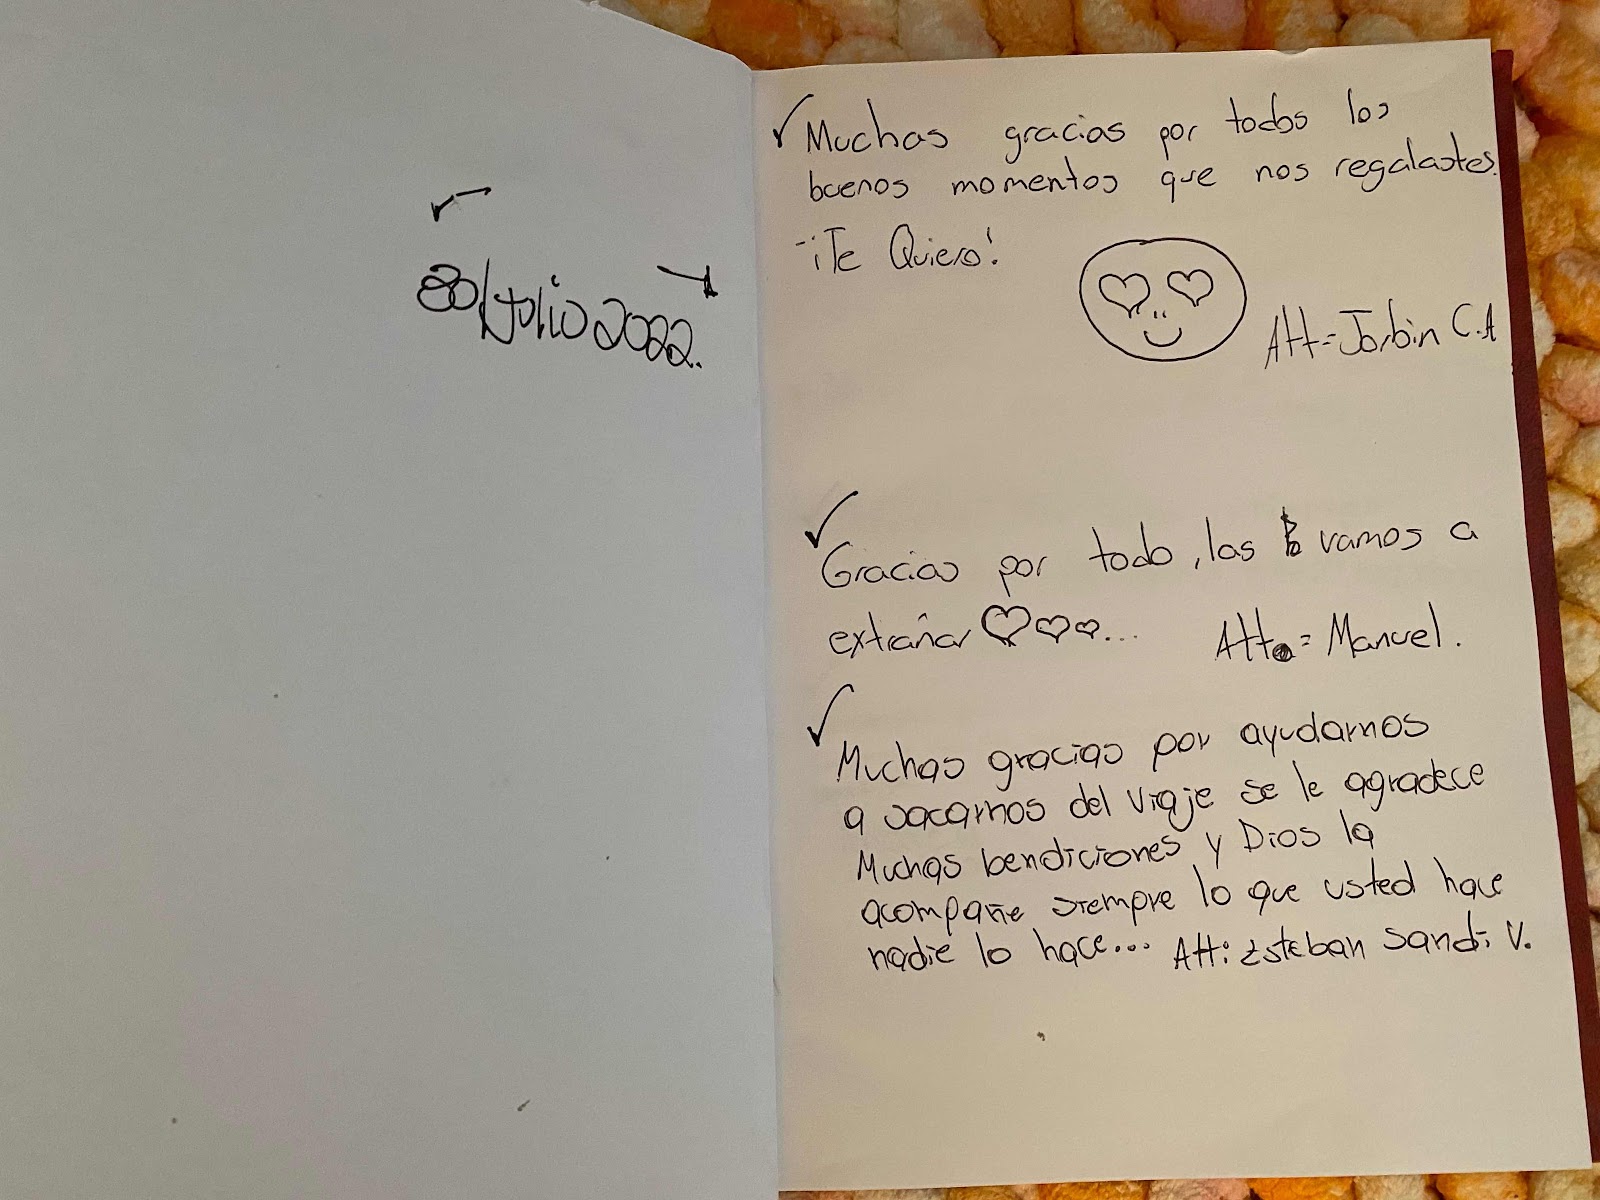 30/Julio 2022.
Muchas gracias por todos los
buenos momentos que nos regalastes.
¡Te Quiero!
Att=Jorbin C.A
Gracias por todo, las vamos a
extrañar ...
Att=Manuel.
Muchas gracias por ayudarnos
a sacarnos del viaje se le agradece
Muchas bendiciones y Dios la
acompañe siempre lo que usted hace
nadie lo hace... Att: Esteban Sandi V.